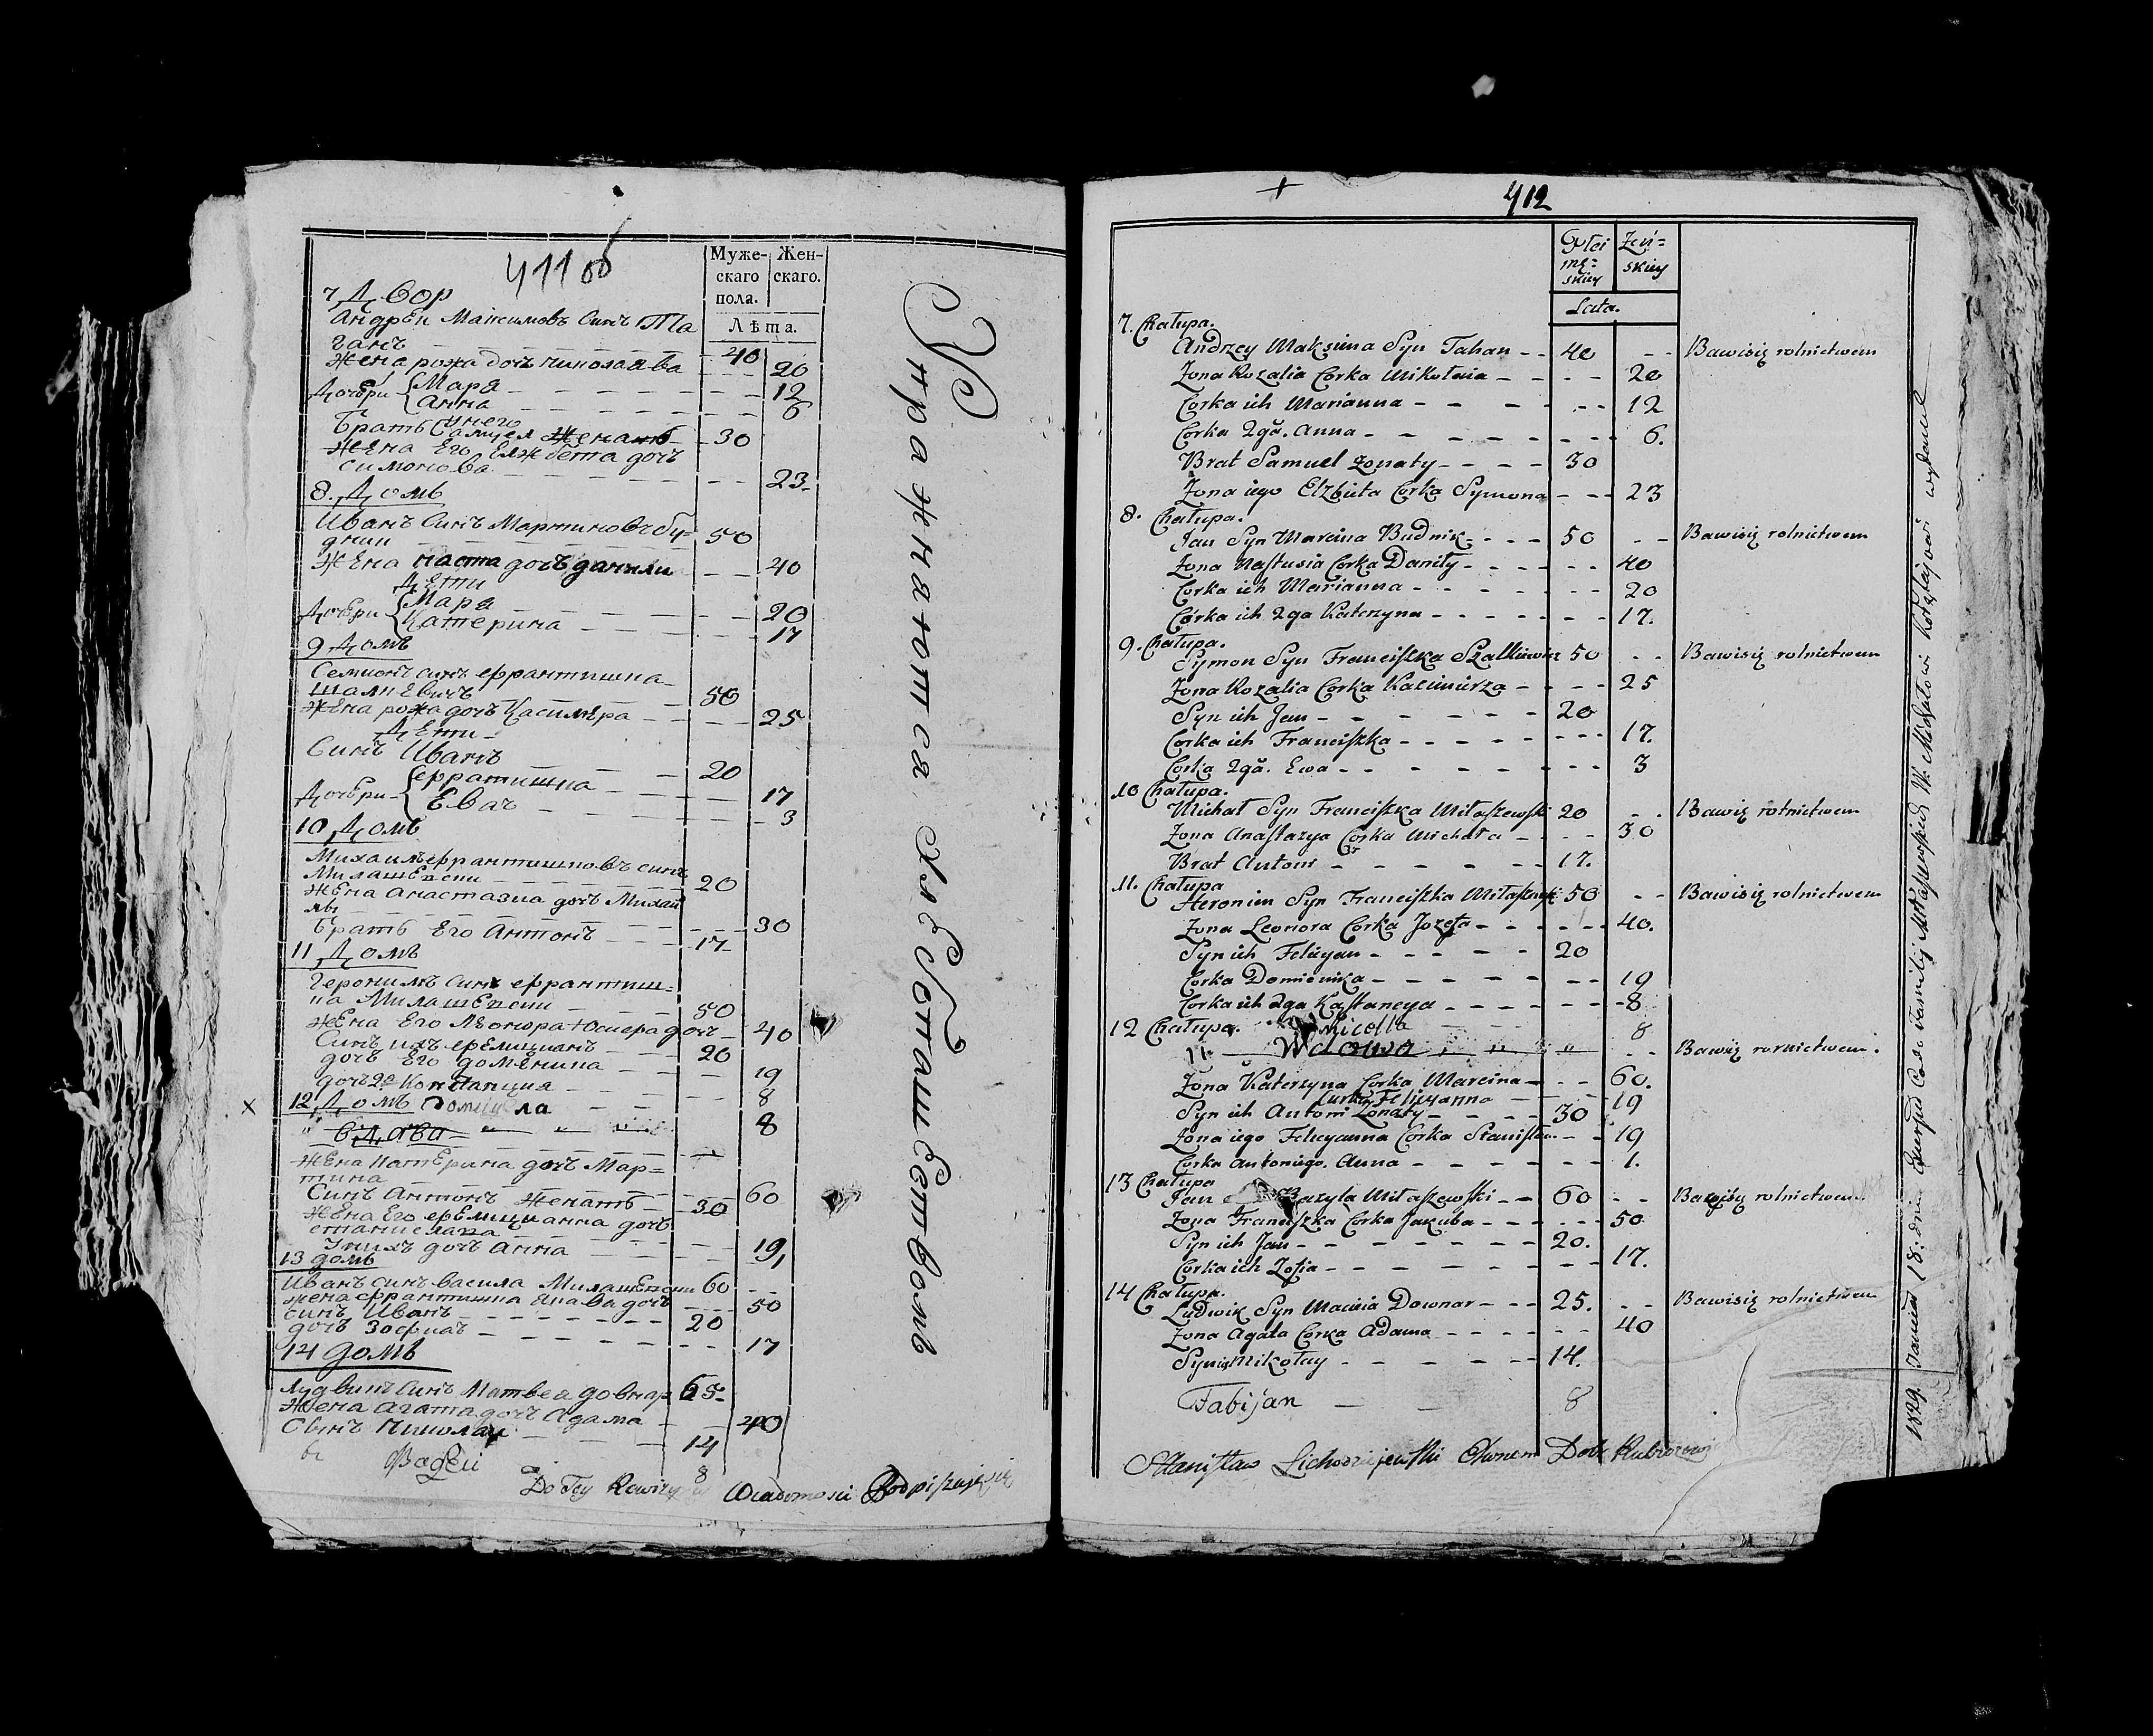 411 об
Муже-
скаго
пола.
Жен-
скаго.
Лѣта.
7 Дворъ
Андрей Максимовъ Синъ Та
ганъ — 40
Жена рожа дочъ николаява — 20
Дочери Маря — 12
Анна — 6
Братъ унего Самуел Женатъ — 30
Жена Его Елжбета дочъ
симонова — 23
8. Домъ
Иванъ Синъ Мартиновъ бу-
дник — 50
Жена наста дочъ данили — 40
Дети
Дочери Маря — 20
Катерина — 17
9 Домъ
Семионъ синъ
50
Жена рожа дочъ Касимера — 25
Дети
Синъ Иванъ — 20
Дочери — 17
Ева — 3
10 Домъ
20
Жена Анастазиа дочъ Михай
лы — 30
Братъ Его Антонъ — 17
11 Домъ
50
Жена Его — 40
20
дочъ Его доменика — 19
дочъ 2я Констанция — 8
12 Домъ — 8
вдава
Жена катерина дочъ Мар=
тина — 60
Синъ Антонъ Женатъ — 30
Жена Его дочъ
станислава — 19
Унихъ дочъ Анна — 1
13 домъ
Иванъ синъ василя 60
50
синъ Иванъ — 20
дочъ Зофиа — 17
14 домъ
Лудвикъ Синъ Матвеа довнар
Жена Агата дочъ Адама — 40
Сынъ Николай — 14
8
Упражняются Хлебопашествомъ
Do Tey Rewizy Wiadomosci Podpisuję się
412
Płci
mę=
skiey
Żeń=
skiey
Lata.
7. Chałupa.
Andrzey Maksima Syn Tahan — 40 — Bawisię rolnictwem
Żona Rozalia Corka Mikołaia — 20
Corka ich Marianna — 12
Corka 2ga. Anna — 6.
Brat Samuel żonaty — 30
Żona iego Elzbieta Corka Symona — 23
8. Chałupa.
Jan Syn Marcina Budnik — 50 — Bawisię rolnictwem
Żona Nastusia Corka Daniły — 40
Corka ich Marianna — 20
Corka ich 2ga Katerzyna — 17.
9. Chałupa.
Symon Syn Franciszka Szalkiewicz 50 — Bawisię rolnictwem
Żona Rozalia Corka Kazimirza — 25
Syn ich Jan — 20
Corka ich Franciszka — 17.
Corka 2ga. Ewa — 3
10 Chałupa.
Michał Syn Franciszka Miłaszewski 20 — Bawię rolnictwem
Żona Anastazya Corka Michała — 30
Brat Antoni — 17.
11. Chałupa
Heronim Syn Franciszka Miłaszewski 50 — Bawisię rolnictwem
Żona Leonora Corka Jozefa — 40.
Syn ich Felicyan — 20
Corka Dominika — 19
Corka ich 2ga Kastancya — 8
12 Chałupa. — 8
Wdowa — Bawię rolnictwem.
Żona Katerzyna Corka Marcina — 60.
Curka Felicyanna — 19
Syn ich Antoni Żonaty — 30
Żona iego Felicyanna Corka Stanisława — 19
Corka Antoniego. Anna — 1.
13 Chałupa
Jan Bazyla Miłaszewski — 60 — Bawisię rolnictwem
Żona Franciszka Corka Jakuba — 50
Syn ich Jan — 20.
Corka ich Zofia — 17.
14 Chałupa.
Ludwik Syn Macieia Downar — 25. — Bawisię rolnictwem
Żona Agata Corka Adama — 40
Syn ich Mikołay — 14.
Fabijan — 8
Stanisław Lichodziejewski
1829. 18. dnia